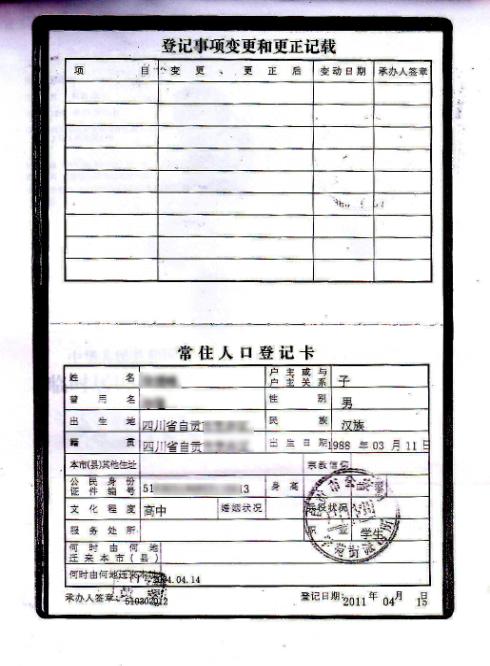 登记事项变更和更正记载
项 目 变 更 、 更 正 后 变动日期 承办人签章
常住人口登记卡
姓 名 户主或与户主关系 子
曾 用 名 性 别 男
出 生 地 四川省自贡 民 族 汉族
籍 贯 四川省自贡 出 生 日期 1988 年 03 月 11 日
本市(县)其他住址 宗教信仰
公民身份证件编号 51 3 身 高
文化程度 高中 婚姻状况 兵役状况
服务处所 职 业 学生
何时由何地迁来本市(县)
何时由何地迁来本址 04.14
承办人签章: 510302012 登记日期: 2011 年 04 月 15 日